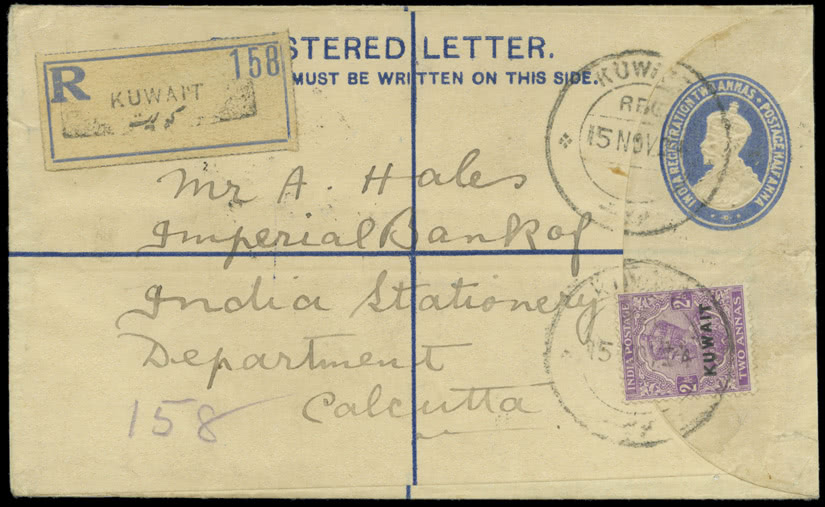 REGISTERED LETTER.
MUST BE WRITTEN ON THIS SIDE.
R 158
KUWAIT
کویت
KUWAIT
REG
15 NOV
INDIA REGISTRATION TWO ANNAS • POSTAGE HALF ANNA
Mr A. Hales
Imperial Bank of
India Stationery
Department
Calcutta
158
15
INDIA POSTAGE
2As
2As
TWO ANNAS
KUWAIT